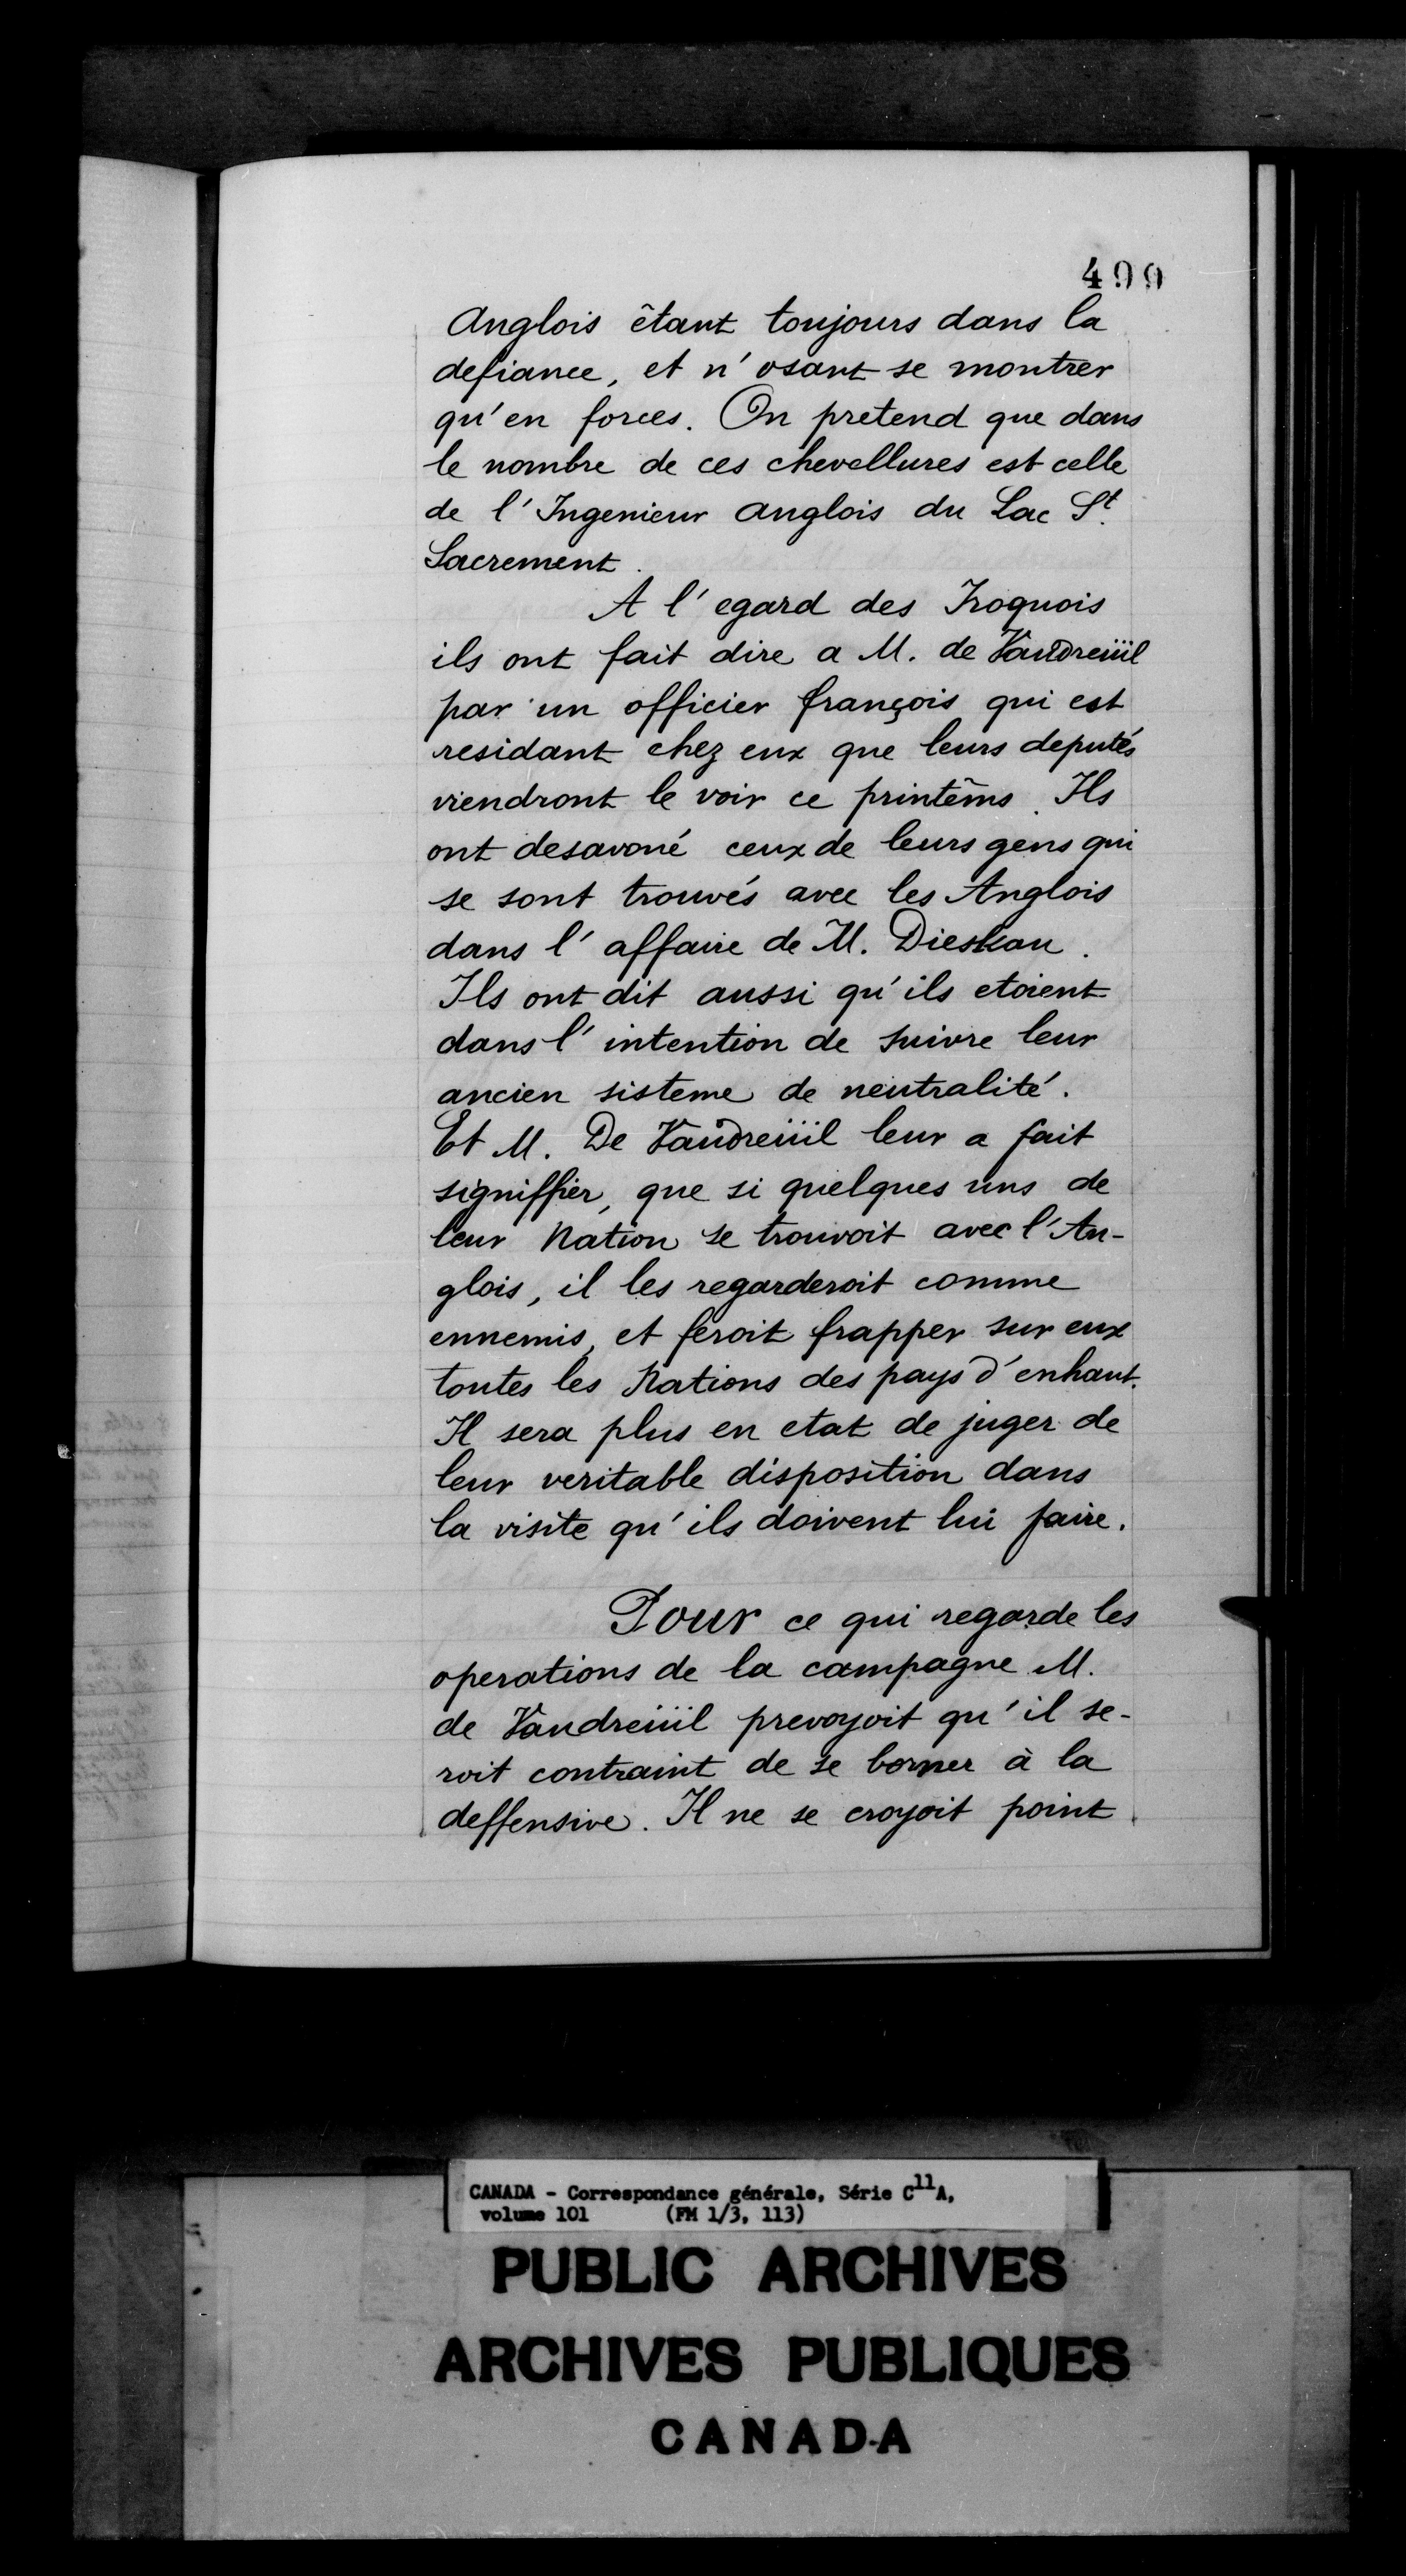 499
Anglois êtant toujours dans la
defiance, et n'osant se montrer
qu'en forces. On pretend que dans
le nombre de ces chevellures est celle
de l'Ingenieur anglois du Lac St.
Sacrement.
A l'egard des Iroquois
ils ont fait dire a M. de Vaudreüil
par un officier françois qui est
residant chez eux que leurs deputés
viendront le voir ce printêms. Ils
ont desavoué ceux de leurs gens qui
se sont trouvés avec les Anglois
dans l'affaire de M. Dieskau.
Ils ont dit aussi qu'ils etoient
dans l'intention de suivre leur
ancien sisteme de neutralité.
Et M. De Vaudreüil leur a fait
signiffier, que si quelques uns de
leur Nation se trouvoit avec l'An-
glois, il les regarderoit comme
ennemis, et feroit frapper sur eux
toutes les Nations des pays d'enhaut.
Il sera plus en etat de juger de
leur veritable disposition dans
la visite qu'ils doivent lui faire.
Pour ce qui regarde les
operations de la campagne M.
de Vaudreüil prevoyoit qu'il se-
roit contraint de se borner à la
deffensive. Il ne se croyoit point
CANADA - Correspondance générale, Série C11A,
volume 101 (FM 1/3, 113)
PUBLIC ARCHIVES
ARCHIVES PUBLIQUES
CANADA